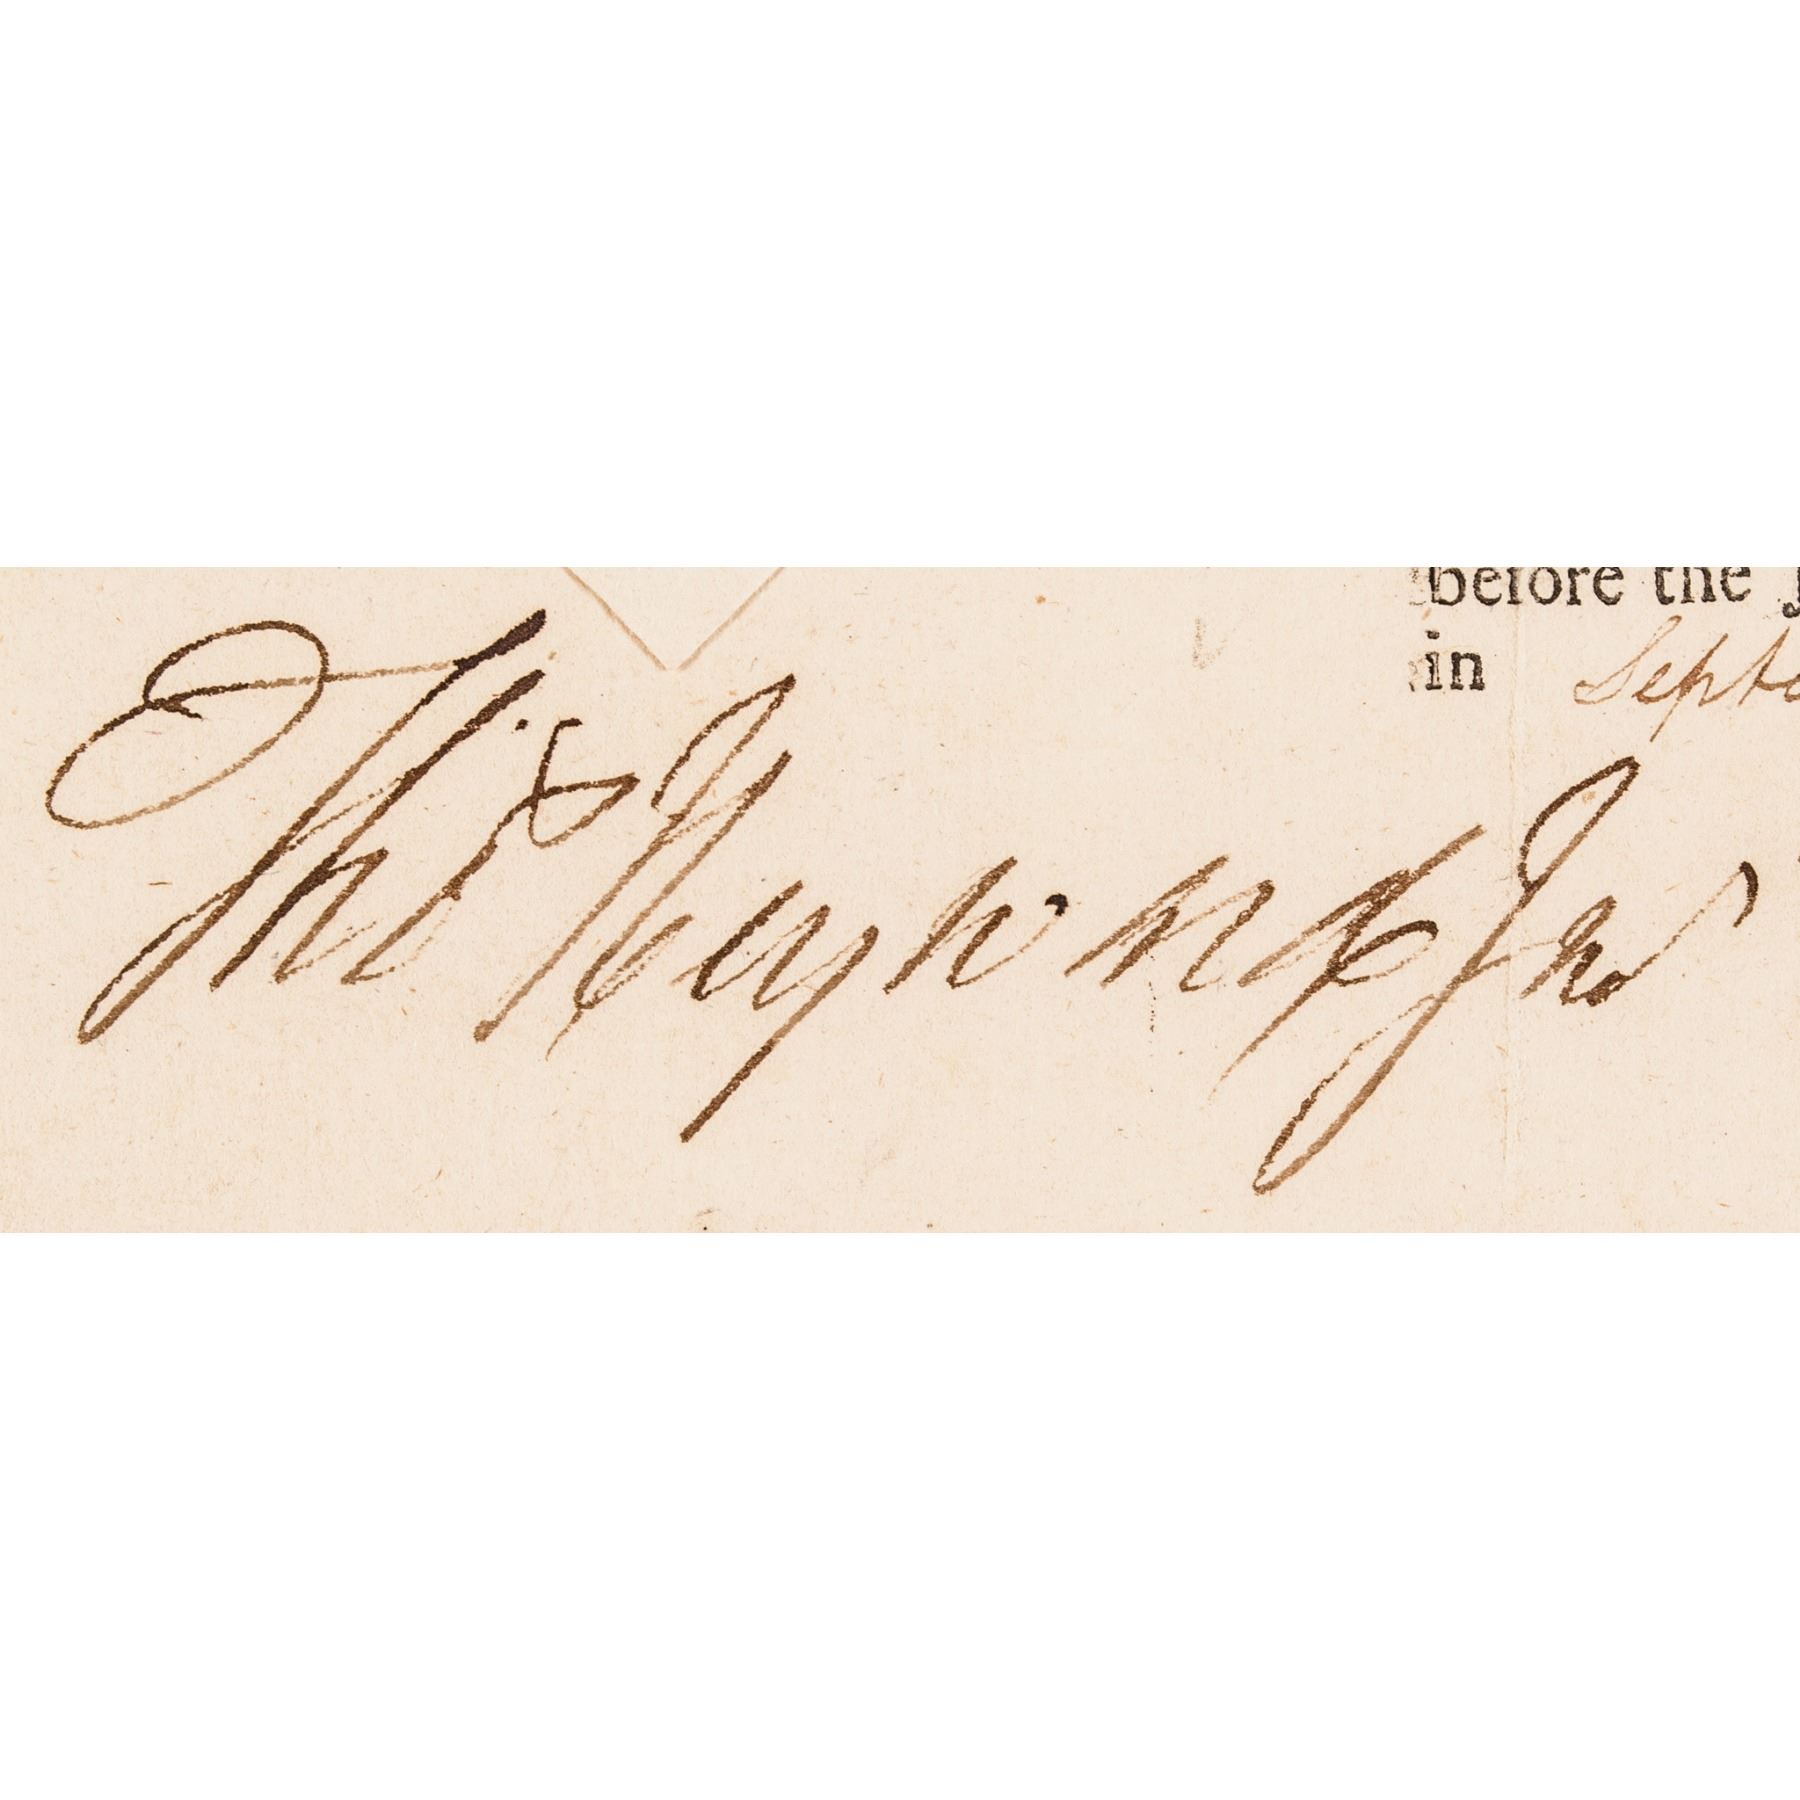 before the
in Septe
Thos Heyward Junr